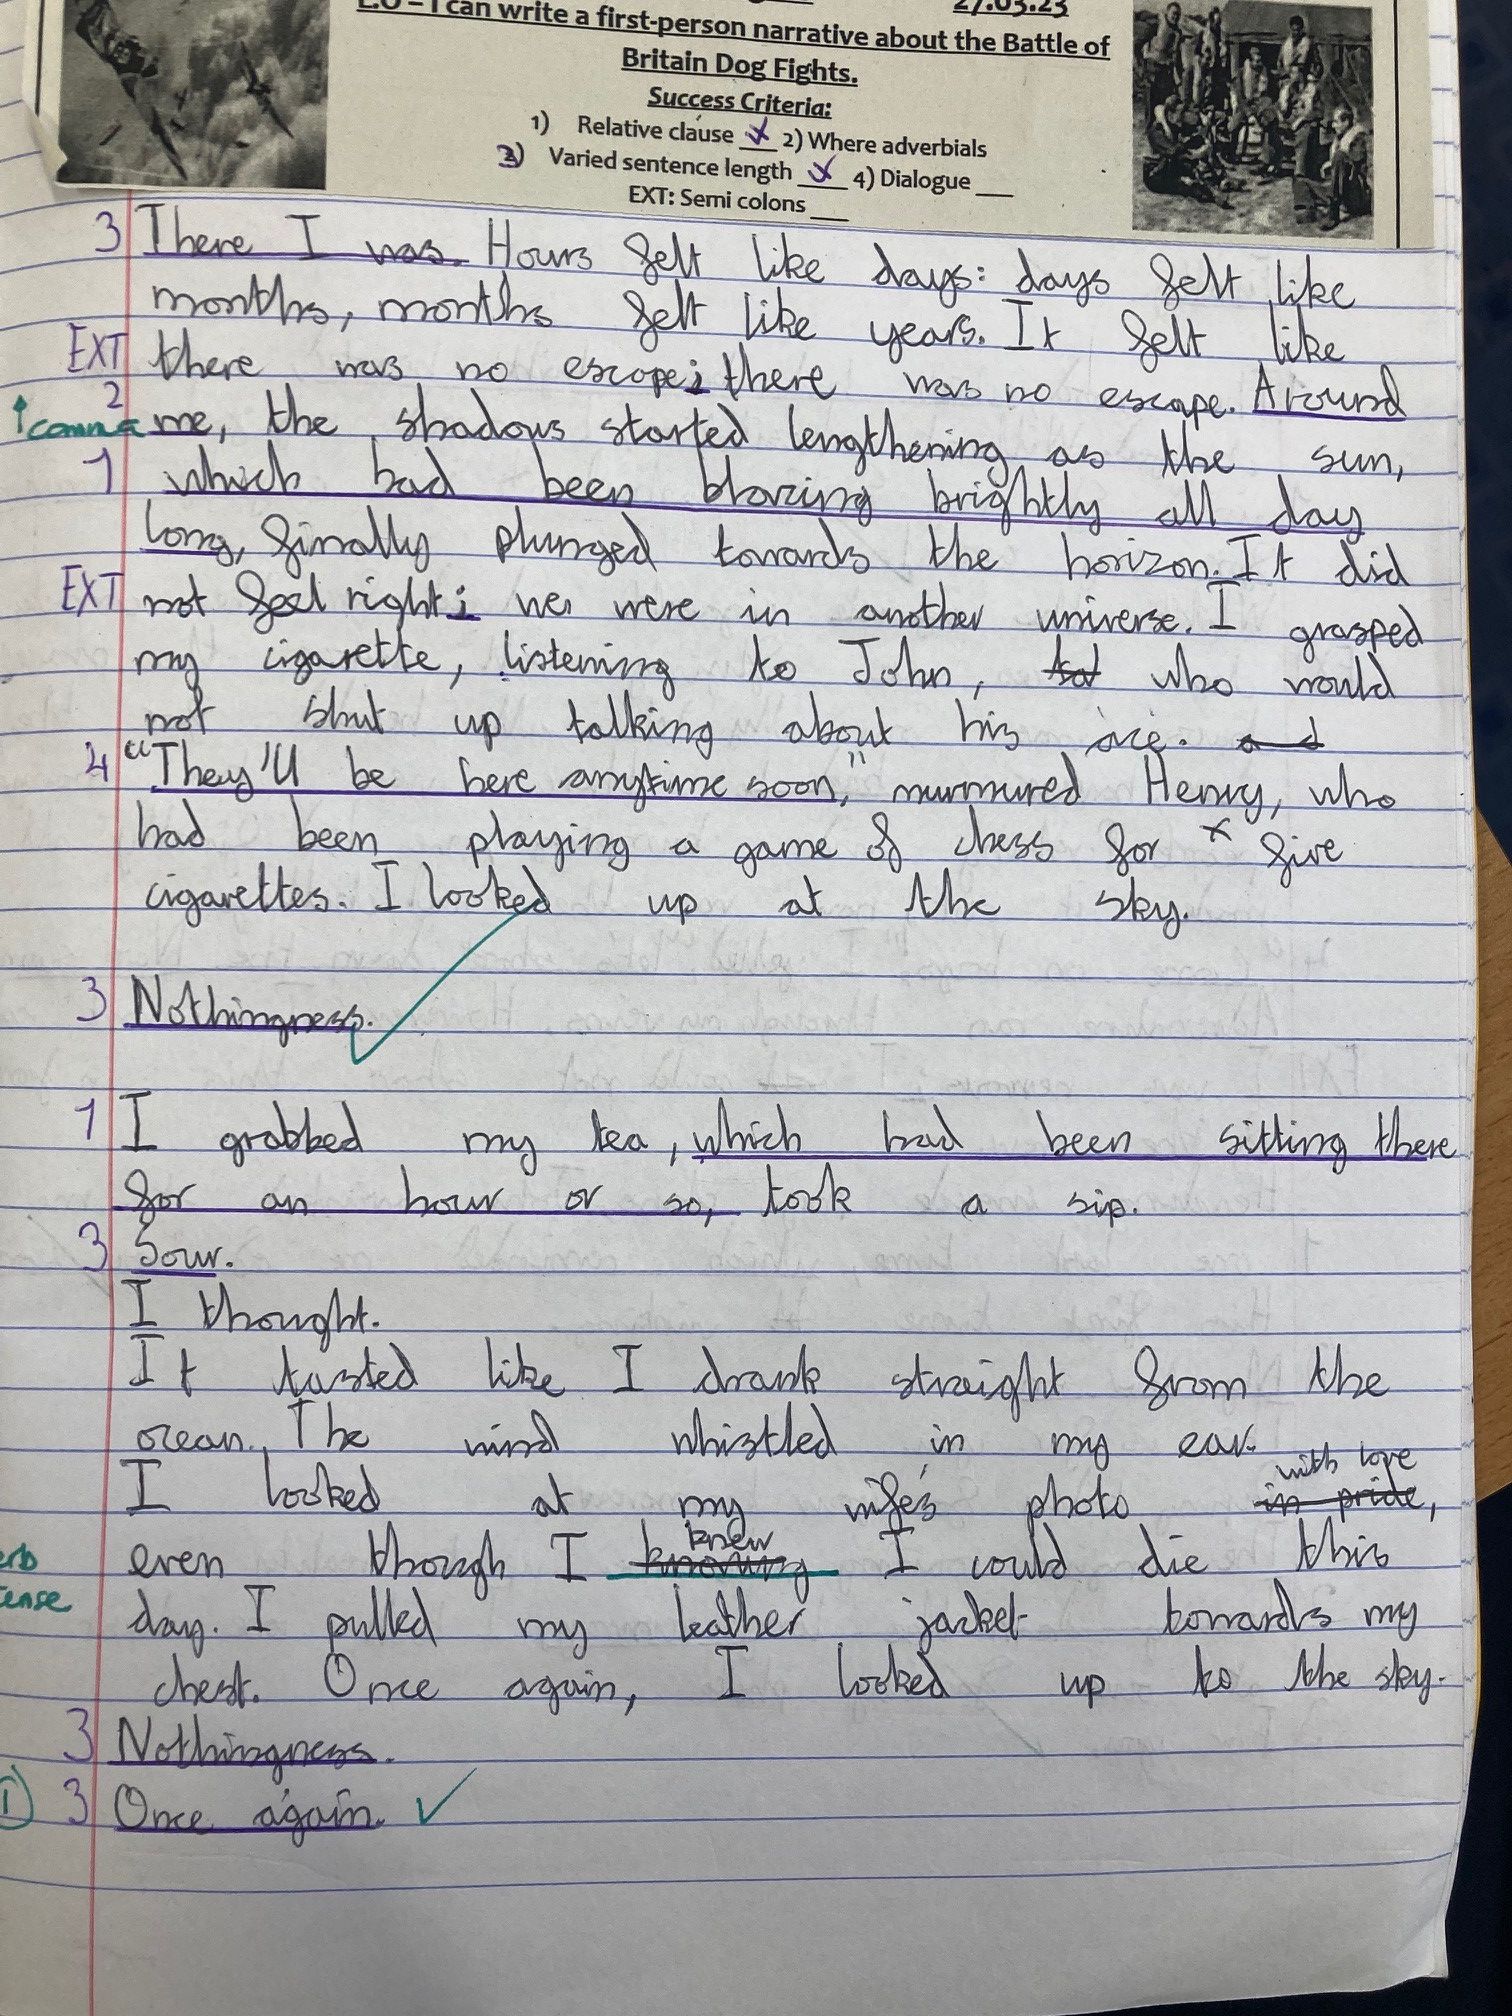 L.O – I can write a first-person narrative about the Battle of 27.03.23
Britain Dog Fights.
Success Criteria:
1) Relative clause 2) Where adverbials
3) Varied sentence length 4) Dialogue
EXT: Semi colons
3 There I was. Hours felt like days: days felt like
months, months felt like years. It felt like
EXT there was no escape; there was no escape. Around
2
comma me, the shadows started lengthening as the sun,
1 which had been blazing brightly all day
long, finally plunged towards the horizon. It did
EXT not feel right; we were in another universe. I grasped
my cigarette, listening to John, who would
not shut up talking about his
4 "They'll be here anytime soon," murmured Henry, who
had been playing a game of chess for five
cigarettes. I looked up at the sky.
3 Nothingness.
1 I grabbed my tea, which had been sitting there
for an hour or so, took a sip.
3 Sour.
I thought.
It tasted like I drank straight from the
ocean. The wind whistled in my ear.
with love
I looked at my wife's photo in pride,
knew
even though I knowing I could die this
tense day. I pulled my leather jacket towards my
chest. Once again, I looked up to the sky.
3 Nothingness.
1 3 Once again.